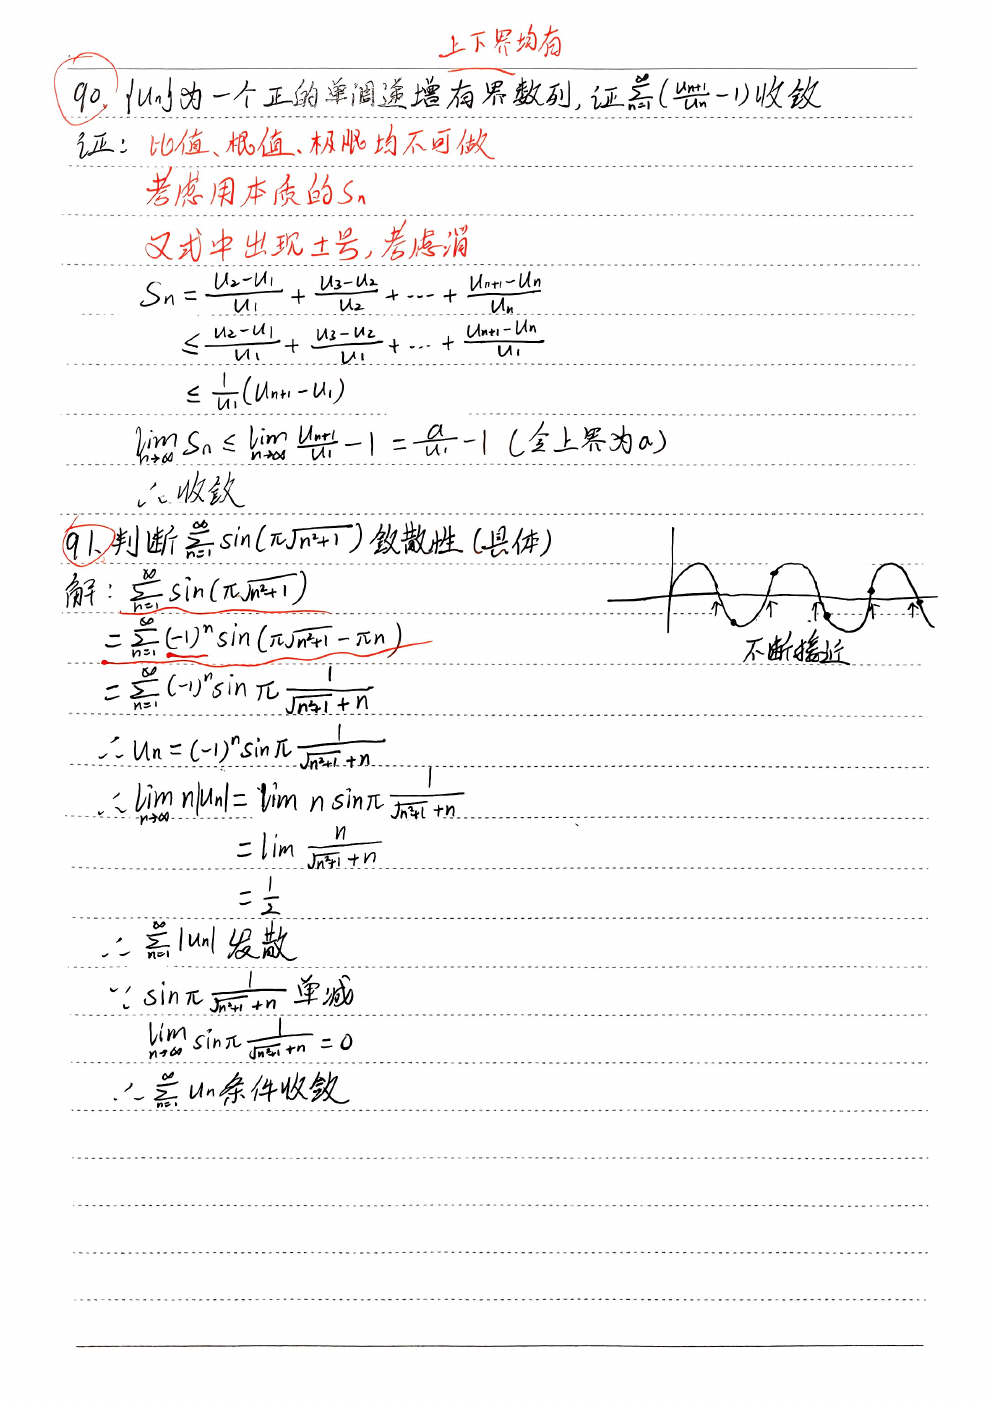 上下界均有
90. {Un}为一个正的单调递增有界数列,证∑_{n=1}^{∞}(U_{n+1}/U_n -1)收敛
证: 比值、根值、极限均不可做
考虑用本质的Sn
又式中出现±号,考虑消
Sn = (U2-U1)/U1 + (U3-U2)/U2 + ··· + (U_{n+1}-U_n)/U_n
≤ (U2-U1)/U1 + (U3-U2)/U1 + ··· + (U_{n+1}-U_n)/U1
≤ 1/U1 (U_{n+1}-U1)
lim_{n→∞} Sn ≤ lim_{n→∞} U_{n+1}/U1 -1 = a/U1 -1 (令上界为a)
∴收敛
91. 判断∑_{n=1}^{∞} sin(π√(n²+1))敛散性(具体)
解: ∑_{n=1}^{∞} sin(π√(n²+1))
= ∑_{n=1}^{∞} (-1)^n sin(π√(n²+1) - πn)
不断接近
= ∑_{n=1}^{∞} (-1)^n sin π 1/(√(n²+1)+n)
∴ Un = (-1)^n sin π 1/(√(n²+1)+n)
∴ lim_{n→∞} n|Un| = lim n sin π 1/(√(n²+1)+n)
= lim n/(√(n²+1)+n)
= 1/2
∴ ∑_{n=1}^{∞} |Un| 发散
∵ sin π 1/(√(n²+1)+n) 单减
lim_{n→∞} sin π 1/(√(n²+1)+n) = 0
∴ ∑_{n=1}^{∞} Un 条件收敛